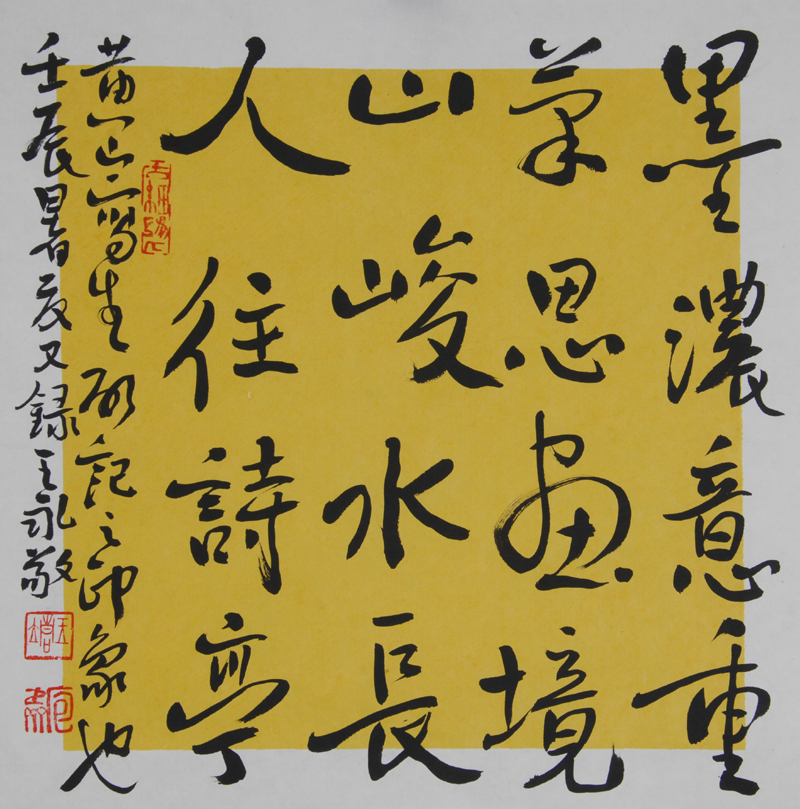 墨濃意重
筆思畫境
山峻水長
人往詩亭
黄山寫生所記之印象也
壬辰暑夜又録王永敬